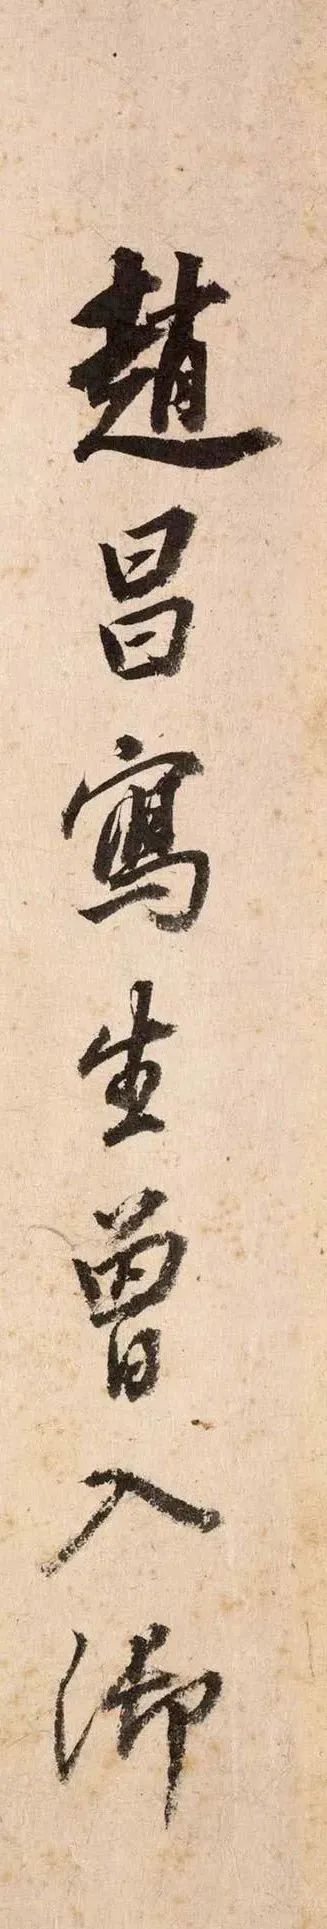 趙昌寫生曾入御